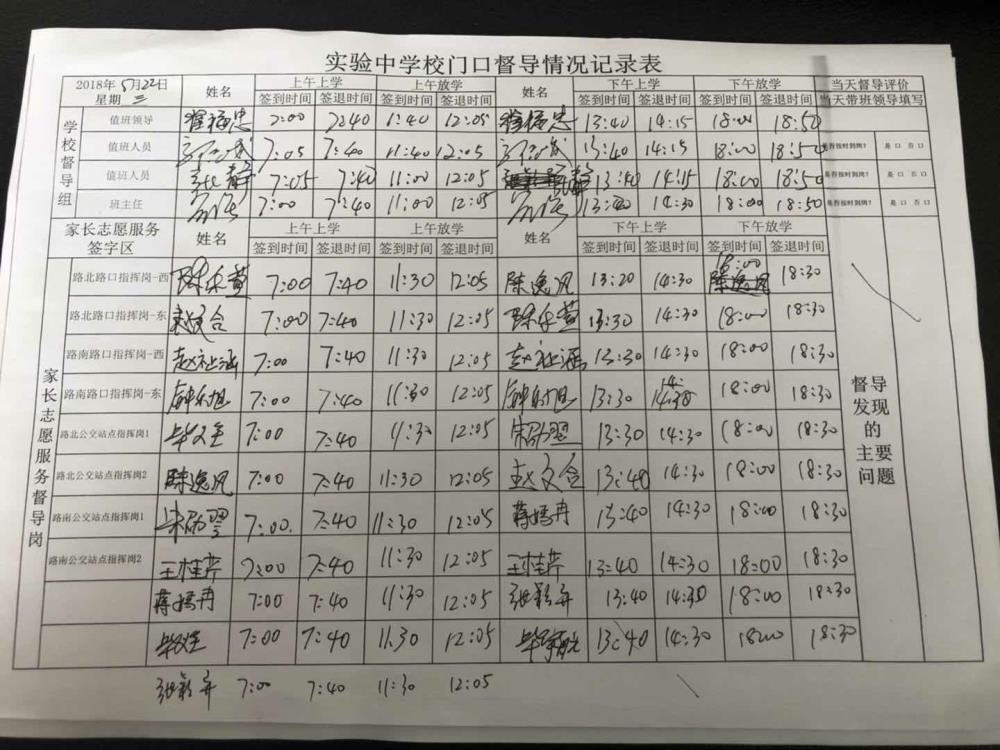 实验中学校门口督导情况记录表
2018年 5月22日 姓名 上午上学 上午放学 姓名 下午上学 下午放学 当天督导评价
星期 三 签到时间 签退时间 签到时间 签退时间 签到时间 签退时间 签到时间 签退时间 当天带班领导填写
学校督导组
值班领导 7:00 7:40 11:40 12:05 13:40 14:15 18:00 18:50
值班人员 7:05 7:40 11:40 12:05 13:40 14:15 18:00 18:50 是否按时到岗? 是 口 否 口
值班人员 张静 7:05 7:40 11:00 12:05 13:40 14:15 18:00 18:50 是否按时到岗? 是 口 否 口
班主任 7:00 7:40 11:00 12:05 13:40 14:30 18:00 18:50 是否按时到岗? 是 口 否 口
家长志愿服务 姓名 上午上学 上午放学 姓名 下午上学 下午放学
签字区 签到时间 签退时间 签到时间 签退时间 签到时间 签退时间 签到时间 签退时间
家长志愿服务督导岗
路北路口指挥岗-西 7:00 7:40 11:30 12:05 陈逸凡 13:20 14:30 18:00 陈逸凡 18:30
路北路口指挥岗-东 赵文合 7:00 7:40 11:30 12:05 13:30 14:30 18:00 18:30
路南路口指挥岗-西 赵祉涵 7:00 7:40 11:30 12:05 赵祉涵 13:30 14:30 18:00 18:30
路南路口指挥岗-东 7:00 7:40 11:30 12:05 13:30 14:30 18:00 18:30
路北公交站点指挥岗1 7:00 7:40 11:30 12:05 13:30 14:30 18:00 18:30
路北公交站点指挥岗2 陈逸凡 7:00 7:40 11:30 12:05 赵文合 13:40 14:30 18:00 18:30
路南公交站点指挥岗1 7:00 7:40 11:30 12:05 13:40 14:30 18:00 18:30
路南公交站点指挥岗2 王桂芹 7:00 7:40 11:30 12:05 王桂芹 13:40 14:30 18:00 18:30
7:00 7:40 11:30 12:05 13:40 14:30 18:00 18:30
7:00 7:40 11:30 12:05 13:40 14:30 18:00 18:30
7:00 7:40 11:30 12:05
督导
发现
的
主要
问题